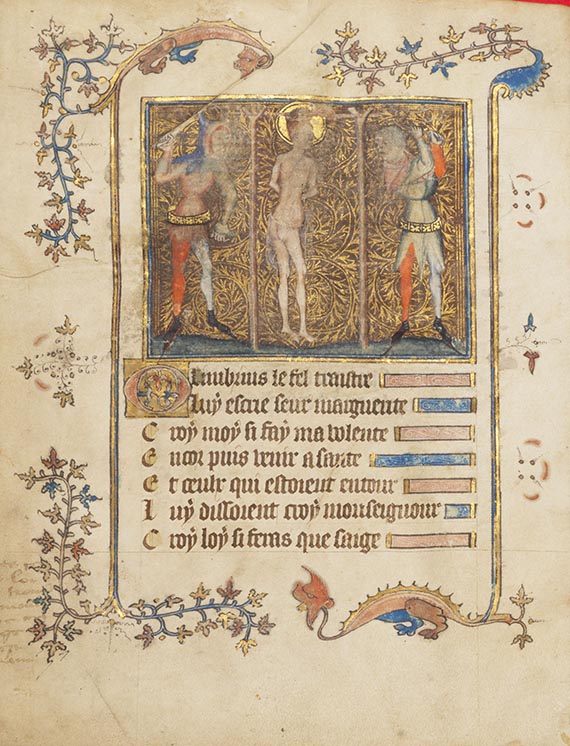 Olimbrius le fel traistre
Luy escrie seur marguerite
Croy moy si fay ma volente
Encor puis venir a sante
Et ceulx qui estoient entour
Luy dissoient croy monseignour
Croy loy si feras que saige